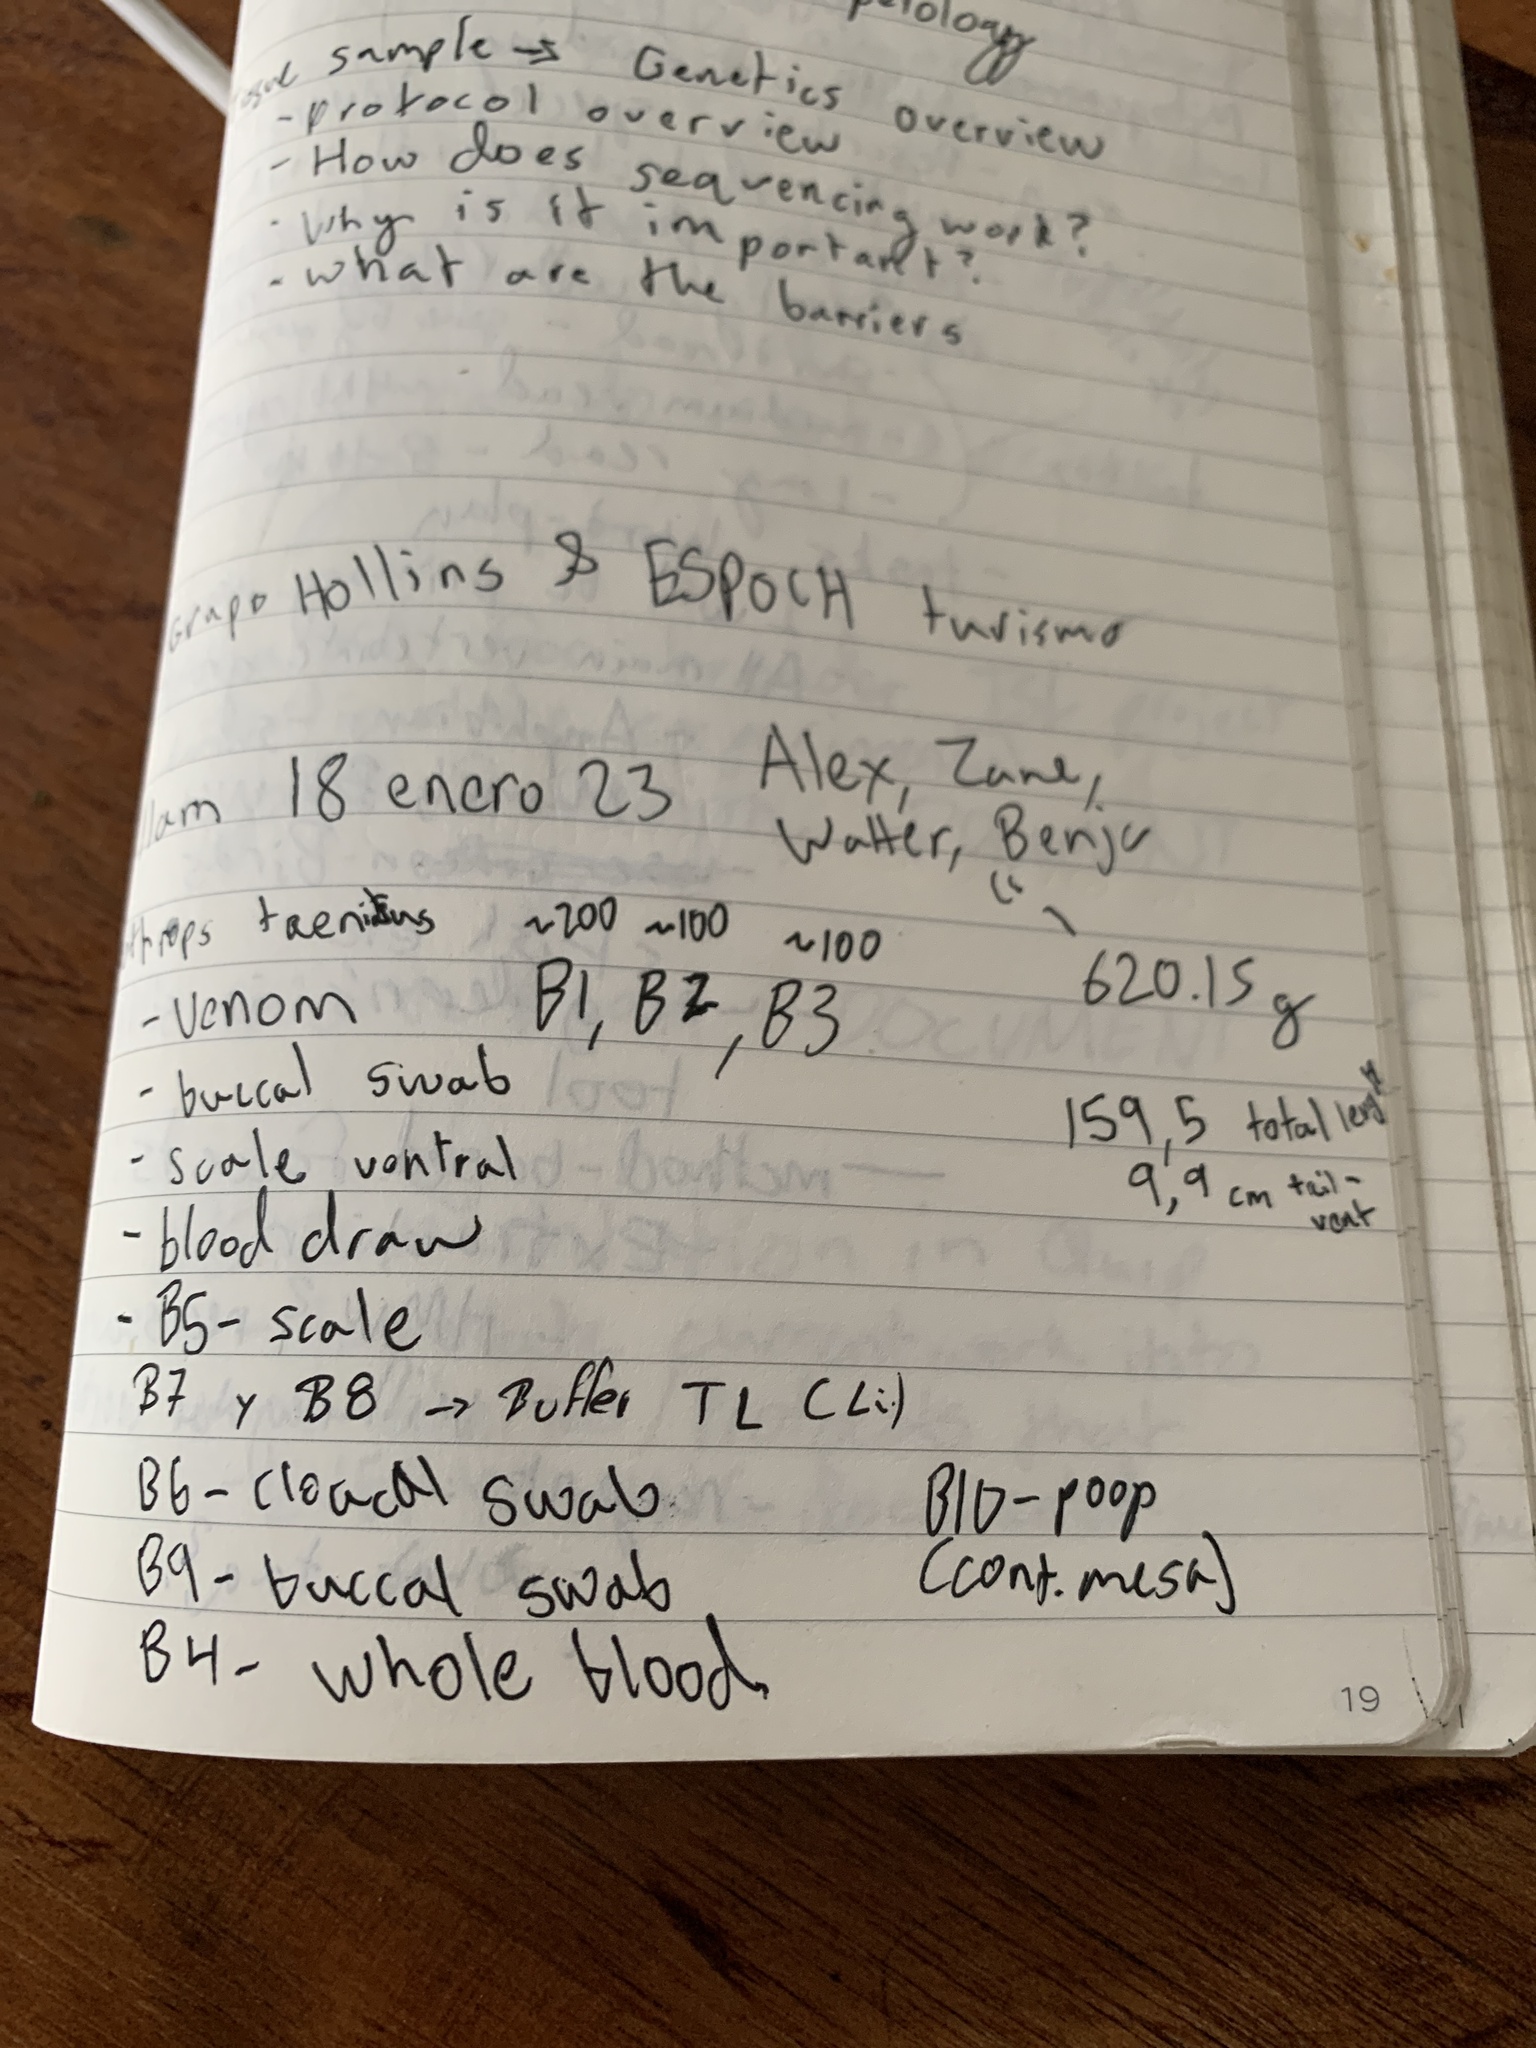 sample → Genetics overview
- protocol overview
- How does sequencing work?
- Why is it important?
- what are the barriers
Grupo Hollins & ESPOCH turismo
11am 18 enero 23 Alex, Zane,
Walter, Benja
taeniatus ~200 ~100 ~100
620.15 g
- venom B1, B2, B3
- buccal swab
159,5 total length
- scale ventral
9,9 cm tail-
vent
- blood draw
- B5- scale
B7 y B8 → Buffer TL (Li)
B6- cloacal swab
B10-poop
B9- buccal swab
(cont. mesa)
B4- whole blood
19